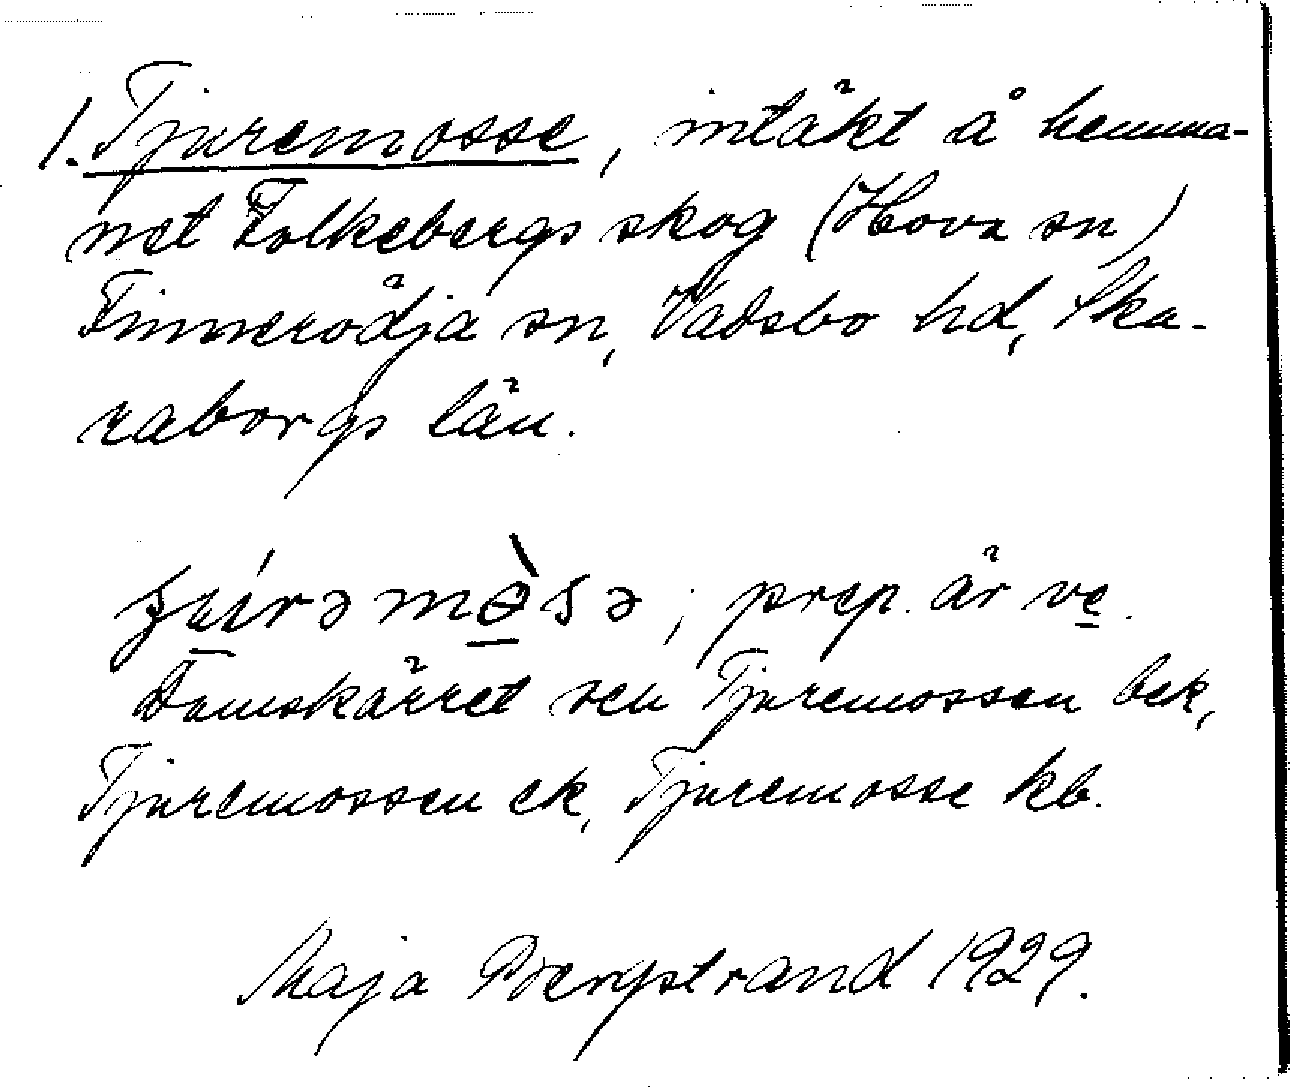 1. Tjuremosse, intäkt å hemma-
net Folkebergs skog (Hova sn)
Finnerödja sn, Vadsbo hd, Ska-
raborgs län.
; prep. är ve.
Damskärret sen Tjuremossen bek,
Tjuremossen ek, Tjuremosse kb.
Maja Bergstrand 1929.